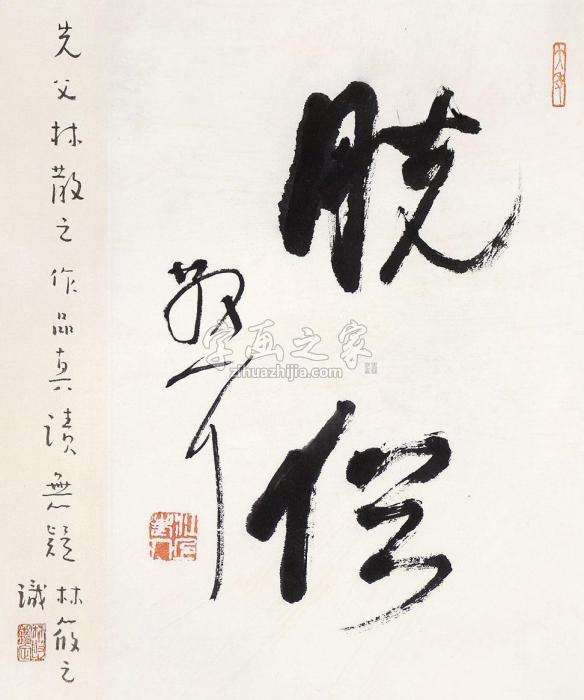 脱俗
散耳
先父林散之作品真蹟無疑
林筱之
識
字画之家
zihuazhijia.com